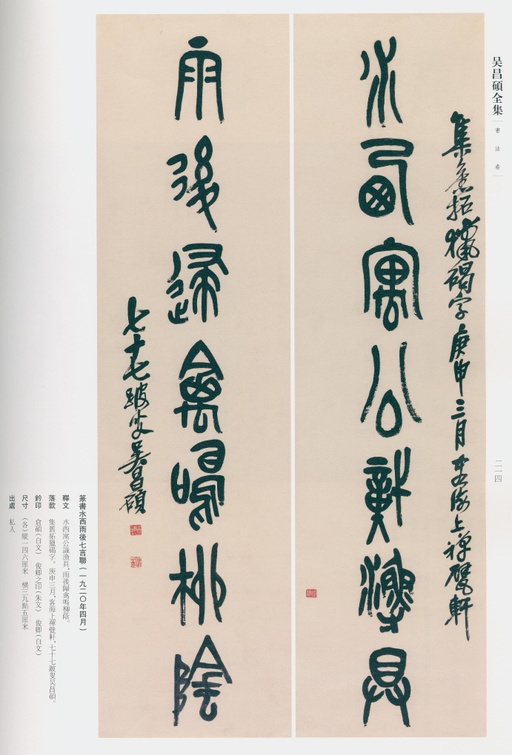 吴昌碩全集
書法卷
二一四
集舊拓獵碣字庚申三月客海上禪甓軒
水西寓公識漁具
雨後歸禽鳴柳陰
七十七跛叟吴昌碩
篆書水西雨後七言聯（一九二〇年四月）
釋文 水西寓公識漁具，雨後歸禽鳴柳陰。
落款 集舊拓獵碣字。庚申三月，客海上禪甓軒，七十七跛叟吴昌碩。
鈐印 倉碩（白文） 俊卿之印（朱文） 俊卿（白文）
尺寸 （各）縱一四六厘米 橫三九點五厘米
出處 私人